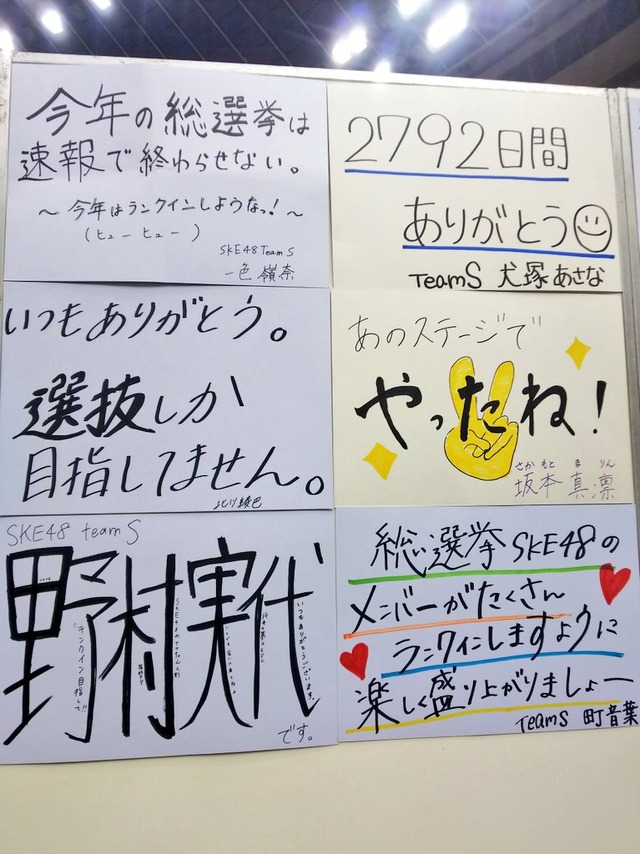 今年の総選挙は
速報で終わらせない。
～今年はランクインしようなっ!～
(ヒューヒュー)
SKE48 Team S
一色嶺奈
2792日間
ありがとう
TeamS 犬塚あさな
いつもありがとう。
選抜しか
目指してません。
北川綾巴
あのステージで
やったね!
さかもと まりん
坂本真凛
SKE48 teamS
野村実代
ランクイン目指して!!
いつもありがとうございます。
です。
総選挙SKE48の
メンバーがたくさん
ランクインしますように
楽しく盛り上がりましょー
TeamS 町音葉